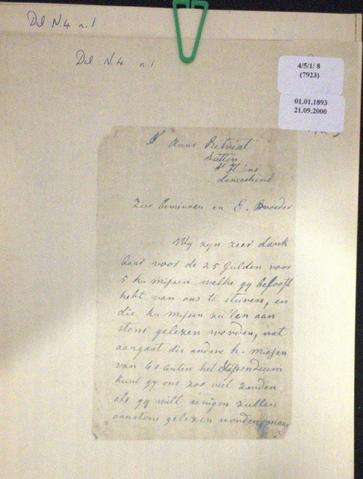 Del N 4 n. 1
Del N. 4 n. 1
4/5/1/ 8
(7923)
01.01.1893
21.09.2000
St Anns Retreat
Sutton
St Helens
Lancashire
Zeer beminnen en E. Broeder
Wij zijn zeer dank
baar voor de 25 Gulden voor
5 h. missen welke gy belooft
hebt van ons te sturen, en
die h. missen zullen aan
stons gelezen worden, wat
aangaat die andere h. missen
van 40 centen het Stipendium
kunt gy ons zoo veel zenden
als gy wilt zullen
aanstons gelezen worden, maar